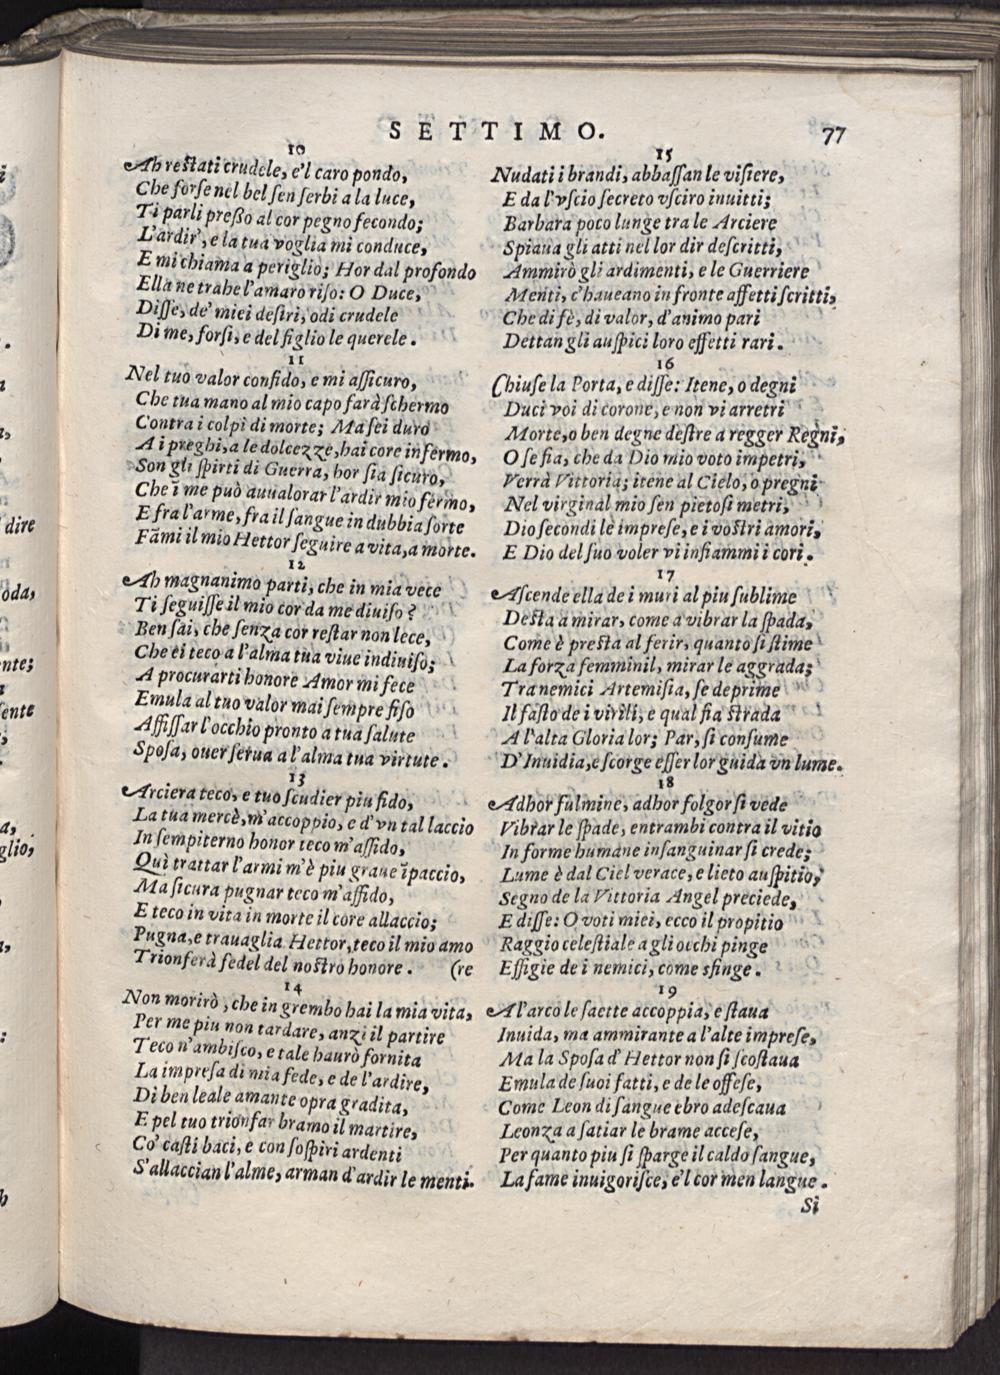 SETTIMO. 77
10
Ah reſtati crudele, e'l caro pondo,
Che forſe nel bel ſen ſerbi a la luce,
Ti parli preſſo al cor pegno fecondo;
L'ardir, e la tua voglia mi conduce,
E mi chiama a periglio; Hor dal profondo
Ella ne trahe l'amaro riſo: O Duce,
Diſſe, de' miei deſiri, odi crudele
Di me, forſi, e del figlio le querele.
11
Nel tuo valor confido, e mi aſſicuro,
Che tua mano al mio capo farà ſchermo
Contra i colpi di morte; Ma ſei duro
A i preghi, a le dolcezze, hai core infermo,
Son gli ſpirti di Guerra, hor ſia ſicuro,
Che ī me può auualorar l'ardir mio fermo,
E fra l'arme, fra il ſangue in dubbia ſorte
Fāmi il mio Hettor ſeguire a vita, a morte.
12
Ah magnanimo parti, che in mia vece
Ti ſeguiſſe il mio cor da me diuiſo?
Ben ſai, che ſenza cor reſtar non lece,
Che ei teco a l'alma tua viue indiuiſo;
A procurarti honore Amor mi fece
Emula al tuo valor mai ſempre fiſo
Affiſſar l'occhio pronto a tua ſalute
Spoſa, ouer ſerua a l'alma tua virtute.
13
Arciera teco, e tuo ſcudier piu fido,
La tua mercè, m'accoppio, e d'vn tal laccio
In ſempiterno honor teco m'aſſido,
Quì trattar l'armi m'è piu graue īpaccio,
Ma ſicura pugnar teco m'affido,
E teco in vita in morte il core allaccio;
Pugna, e trauaglia Hettor, teco il mio amo
Trionferà fedel del noſtro honore. (re
14
Non morirò, che in grembo hai la mia vita,
Per me piu non tardare, anzi il partire
Teco n'ambiſco, e tale haurò fornita
La impreſa di mia fede, e de l'ardire,
Di ben leale amante opra gradita,
E pel tuo trionfar bramo il martire,
Co' caſti baci, e con ſoſpiri ardenti
S'allaccian l'alme, arman d'ardir le menti.
15
Nudati i brandi, abbaſſan le viſiere,
E da l'vſcio ſecreto vſciro inuitti;
Barbara poco lunge tra le Arciere
Spiaua gli atti nel lor dir deſcritti,
Ammirò gli ardimenti, e le Guerriere
Menti, c'haueano in fronte affetti ſcritti,
Che di fè, di valor, d'animo pari
Dettan gli auſpici loro effetti rari.
16
Chiuſe la Porta, e diſſe: Itene, o degni
Duci voi di corone, e non vi arretri
Morte, o ben degne deſtre a regger Regni,
O ſe fia, che da Dio mio voto impetri,
Verrà Vittoria; itene al Cielo, o pregni
Nel virginal mio ſen pietoſi metri,
Dio ſecondi le impreſe, e i voſtri amori,
E Dio del ſuo voler vi infiammi i cori.
17
Aſcende ella de i muri al piu ſublime
Deſta a mirar, come a vibrar la ſpada,
Come è preſta al ferir, quanto ſi ſtime
La forza femminil, mirar le aggrada;
Tra nemici Artemiſia, ſe deprime
Il faſto de i virili, e qual fia ſtrada
A l'alta Gloria lor; Par, ſi conſume
D'Inuidia, e ſcorge eſſer lor guida vn lume.
18
Adhor fulmine, adhor folgor ſi vede
Vibrar le ſpade, entrambi contra il vitio
In forme humane inſanguinar ſi crede;
Lume è dal Ciel verace, e lieto auſpitio,
Segno de la Vittoria Angel preciede,
E diſſe: O voti miei, ecco il propitio
Raggio celeſtiale a gli occhi pinge
Effigie de i nemici, come sfinge.
19
A l'arco le ſaette accoppia, e ſtaua
Inuida, ma ammirante a l'alte impreſe,
Ma la Spoſa d'Hettor non ſi ſcoſtaua
Emula de ſuoi fatti, e de le offeſe,
Come Leon di ſangue ebro adeſcaua
Leonza a ſatiar le brame acceſe,
Per quanto piu ſi ſparge il caldo ſangue,
La fame inuigoriſce, e'l cor men langue.
Si